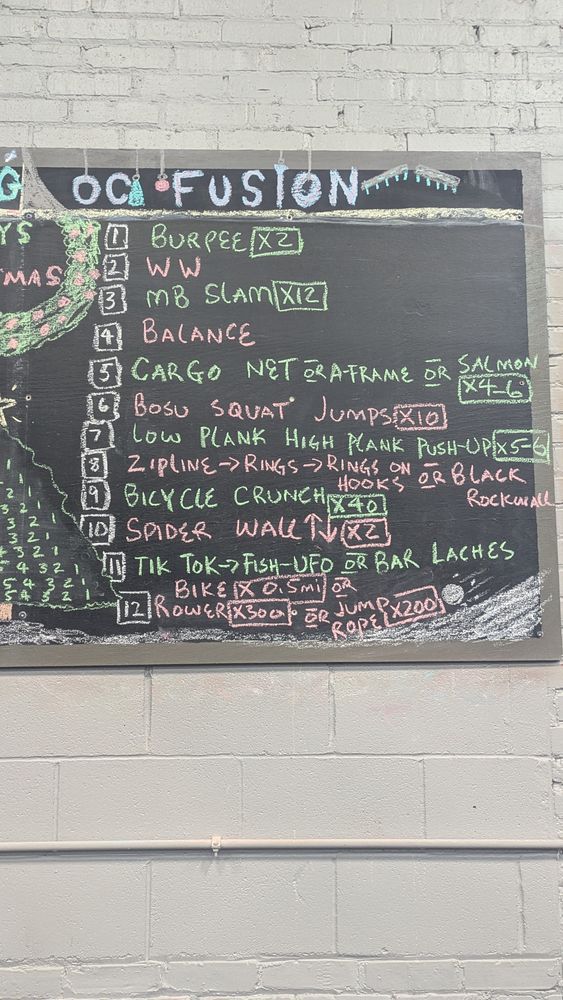 G OC FUSION
YS
MAS
1 BURPEE X2
2 WW
3 MB SLAM X12
4 BALANCE
5 CARGO NET OR A-FRAME OR SALMON X4-6
6 BOSU SQUAT JUMPS X10
7 LOW PLANK HIGH PLANK PUSH-UP X5-6
8 ZIPLINE → RINGS → RINGS ON HOOKS OR BLACK ROCKWALL
9 BICYCLE CRUNCH X40
10 SPIDER WALL ↑↓ X2
11 TIK TOK → FISH-UFO OR BAR LACHES
12 BIKE X 0.5mi OR
ROWER X300 OR JUMP ROPE X200
1
21
21
321
321
4321
54321
54321